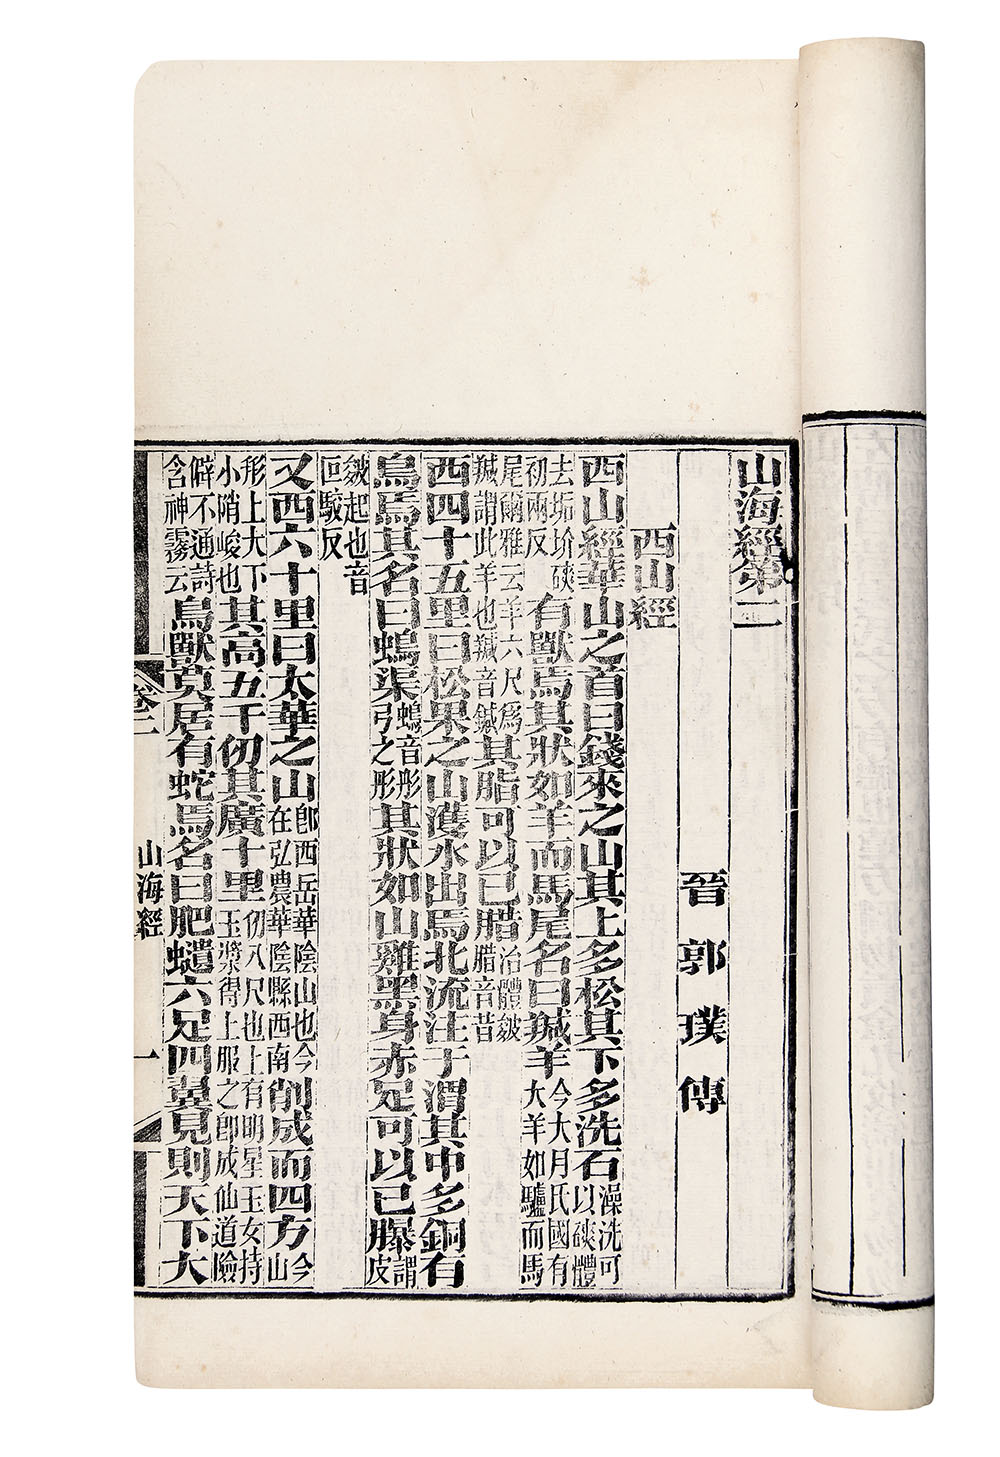 山海經第二
晉郭璞傳
西山經
西山經華山之首曰錢來之山其上多松其下多洗石澡洗可以磢體
去垢圿磢初兩反有獸焉其狀如羊而馬尾名曰羬羊今大月氏國有大羊如驢而馬
尾爾雅云羊六尺爲羬謂此羊也羬音鍼其脂可以已腊治體皴腊音昔
西四十五里曰松果之山濩水出焉北流注于渭其中多銅有
鳥焉其名曰螐渠螐音彤弓之彤其狀如山雞黑身赤足可以已𦢊謂皮
皴起也音回駮反
又西六十里曰太華之山卽西岳華陰山也今在弘農華陰縣西南削成而四方今山
形上大下小陗峻也其高五千仞其廣十里仞八尺也上有明星玉女持玉漿得上服之卽成仙道險
僻不通詩含神霧云鳥獸莫居有蛇焉名曰肥𧔥六足四翼見則天下大
卷二 山海經 一